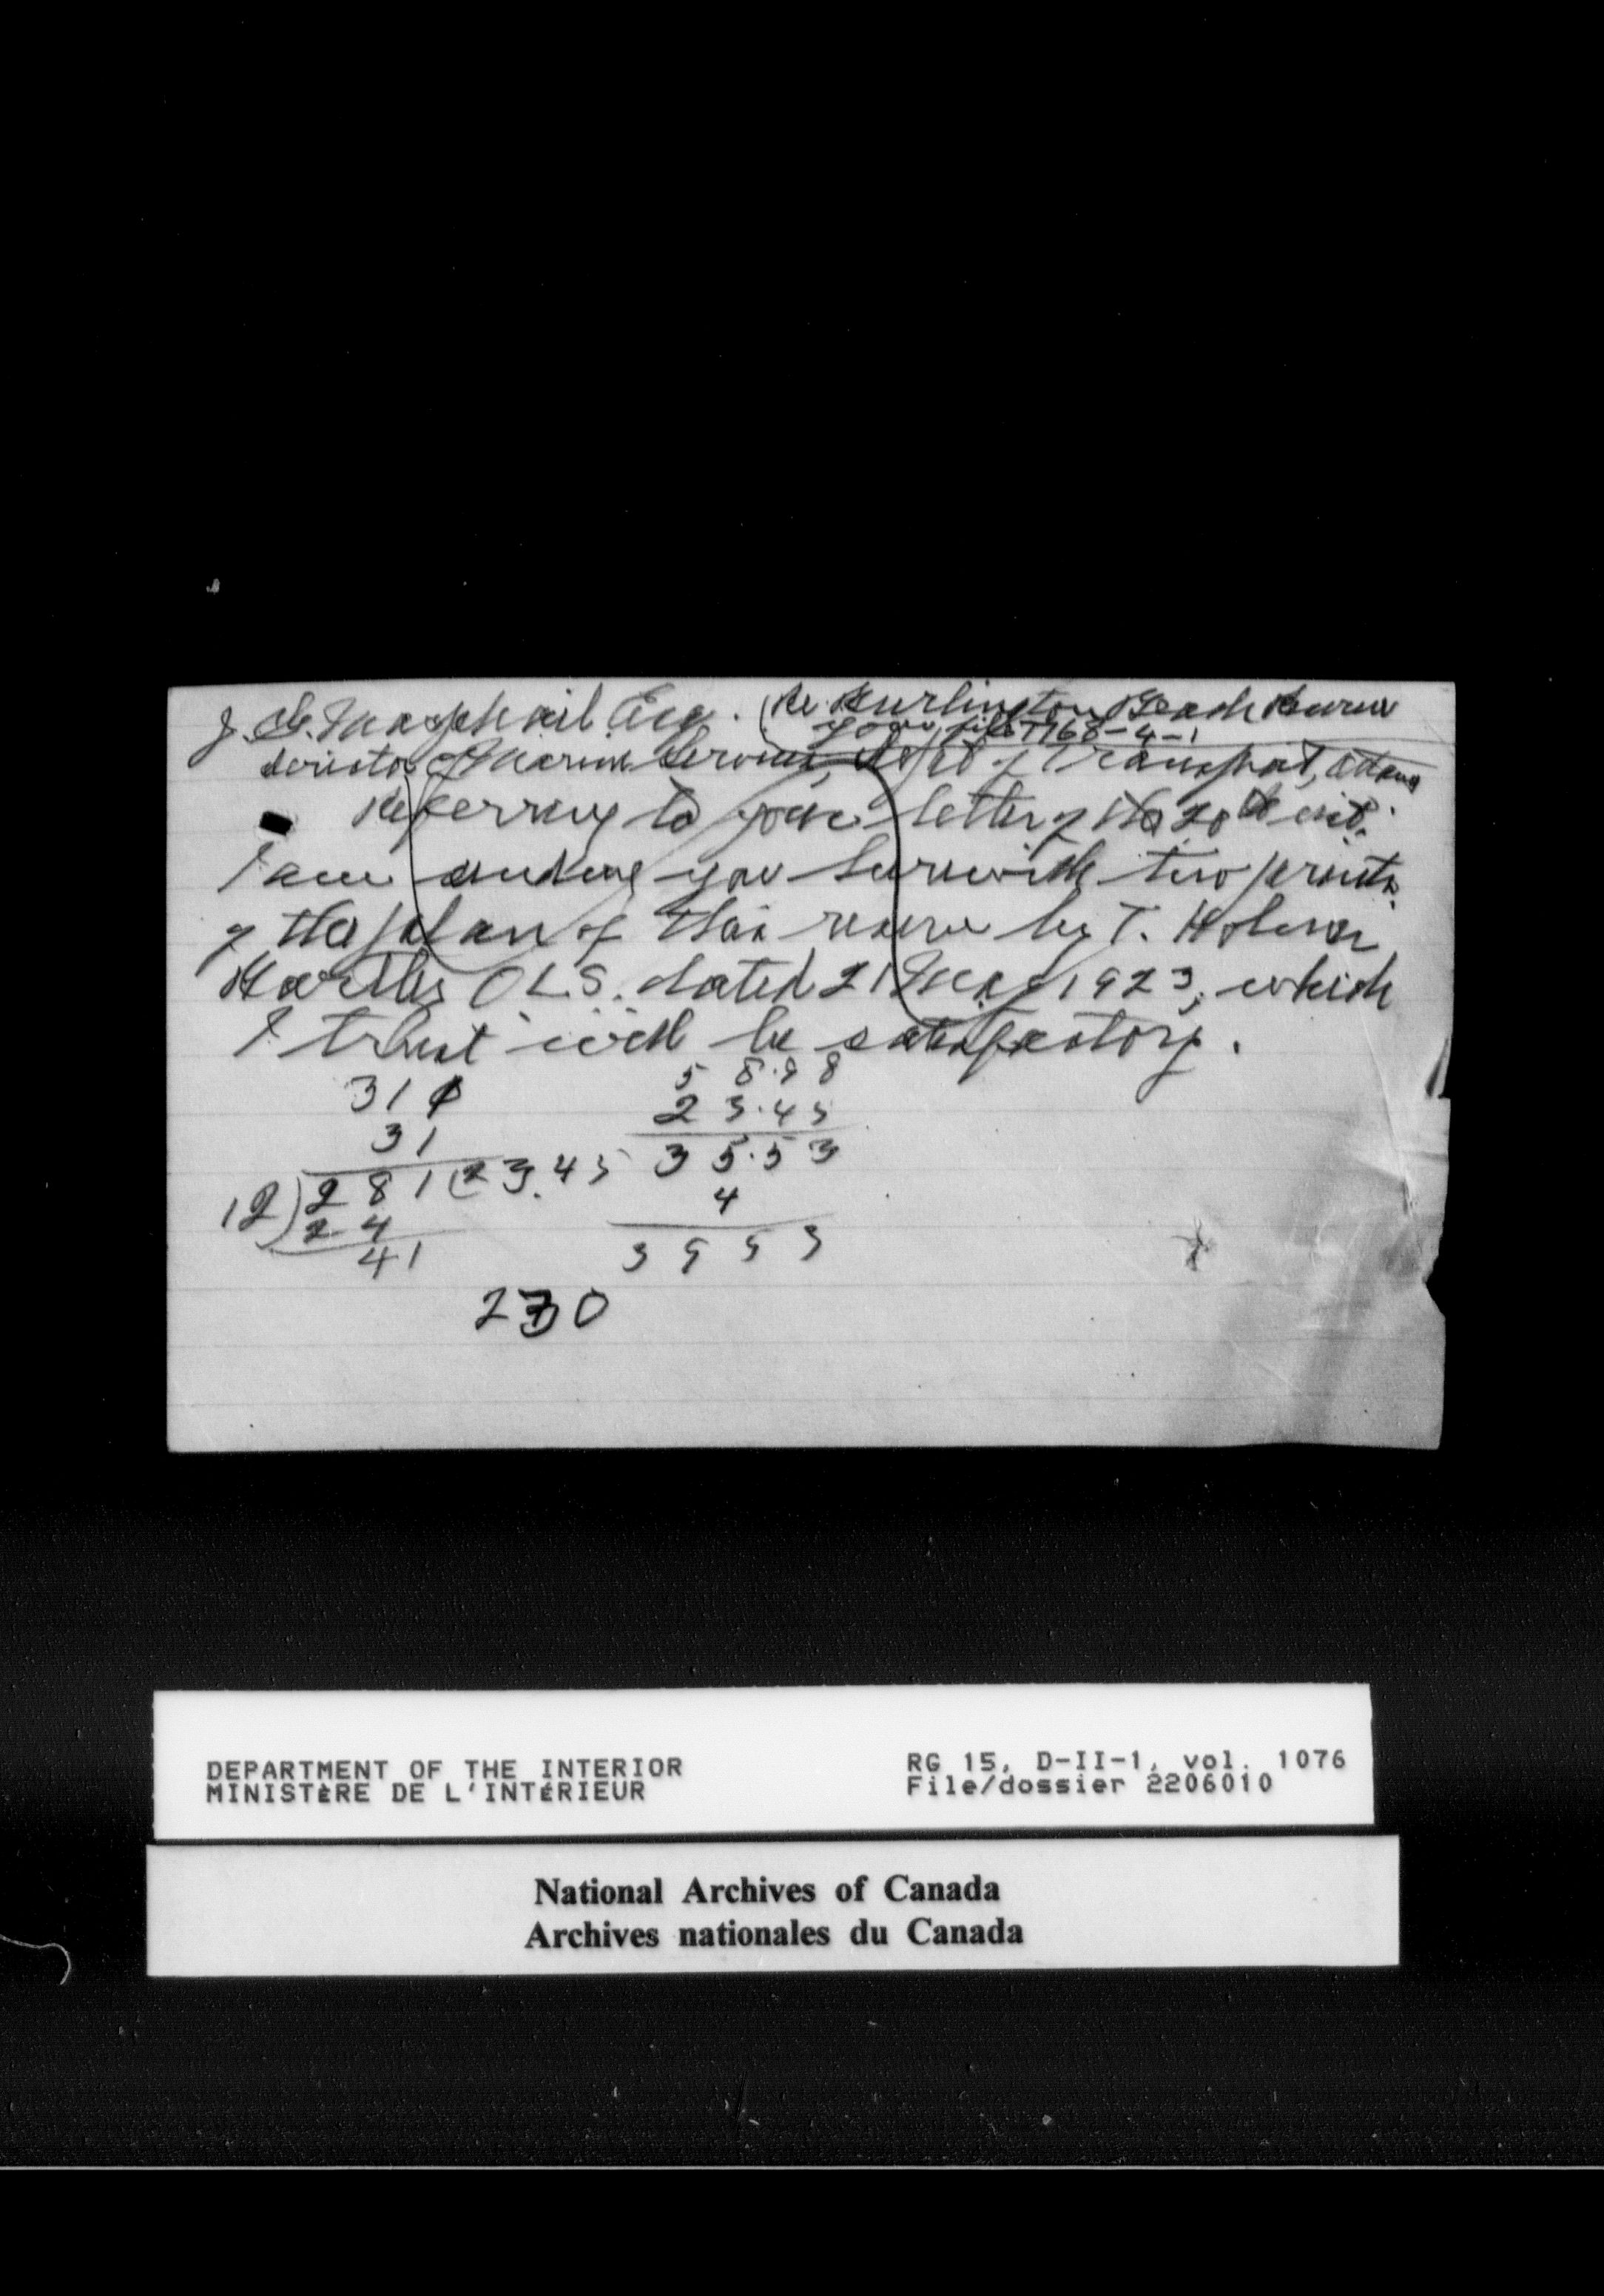 J. G. Macphail Esq. (Re. Burlington Beach Reserve
your file 7768-4-1
Director of Marine Services, Dept of Transport, Ottawa
Referring to your letter of the 20th inst.
I am sending you herewith two prints
of the plan of this reserve by T. Holmes
Bartley O.L.S. dated 21 May 1923, which
I trust will be satisfactory.
310 58.98
31 23.45
12)281(23.45 35.53
24 4
41 3553
230
DEPARTMENT OF THE INTERIOR RG 15, D-II-1, vol. 1076
MINISTÈRE DE L'INTÉRIEUR File/dossier 2206010
National Archives of Canada
Archives nationales du Canada